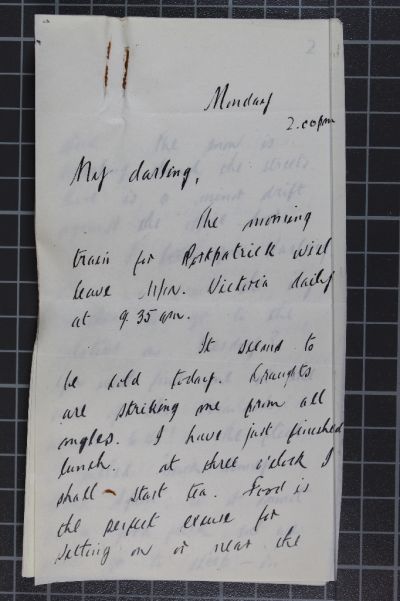 2
Monday
2.00pm
My darling,
The morning
train for Portpatrick will
leave M/r. Victoria daily
at 9.35 am.
It seems to
be cold today. Draughts
are striking me from all
angles. I have just finished
lunch. at three o'clock I
shall start tea. Food is
the perfect excuse for
sitting on or near the